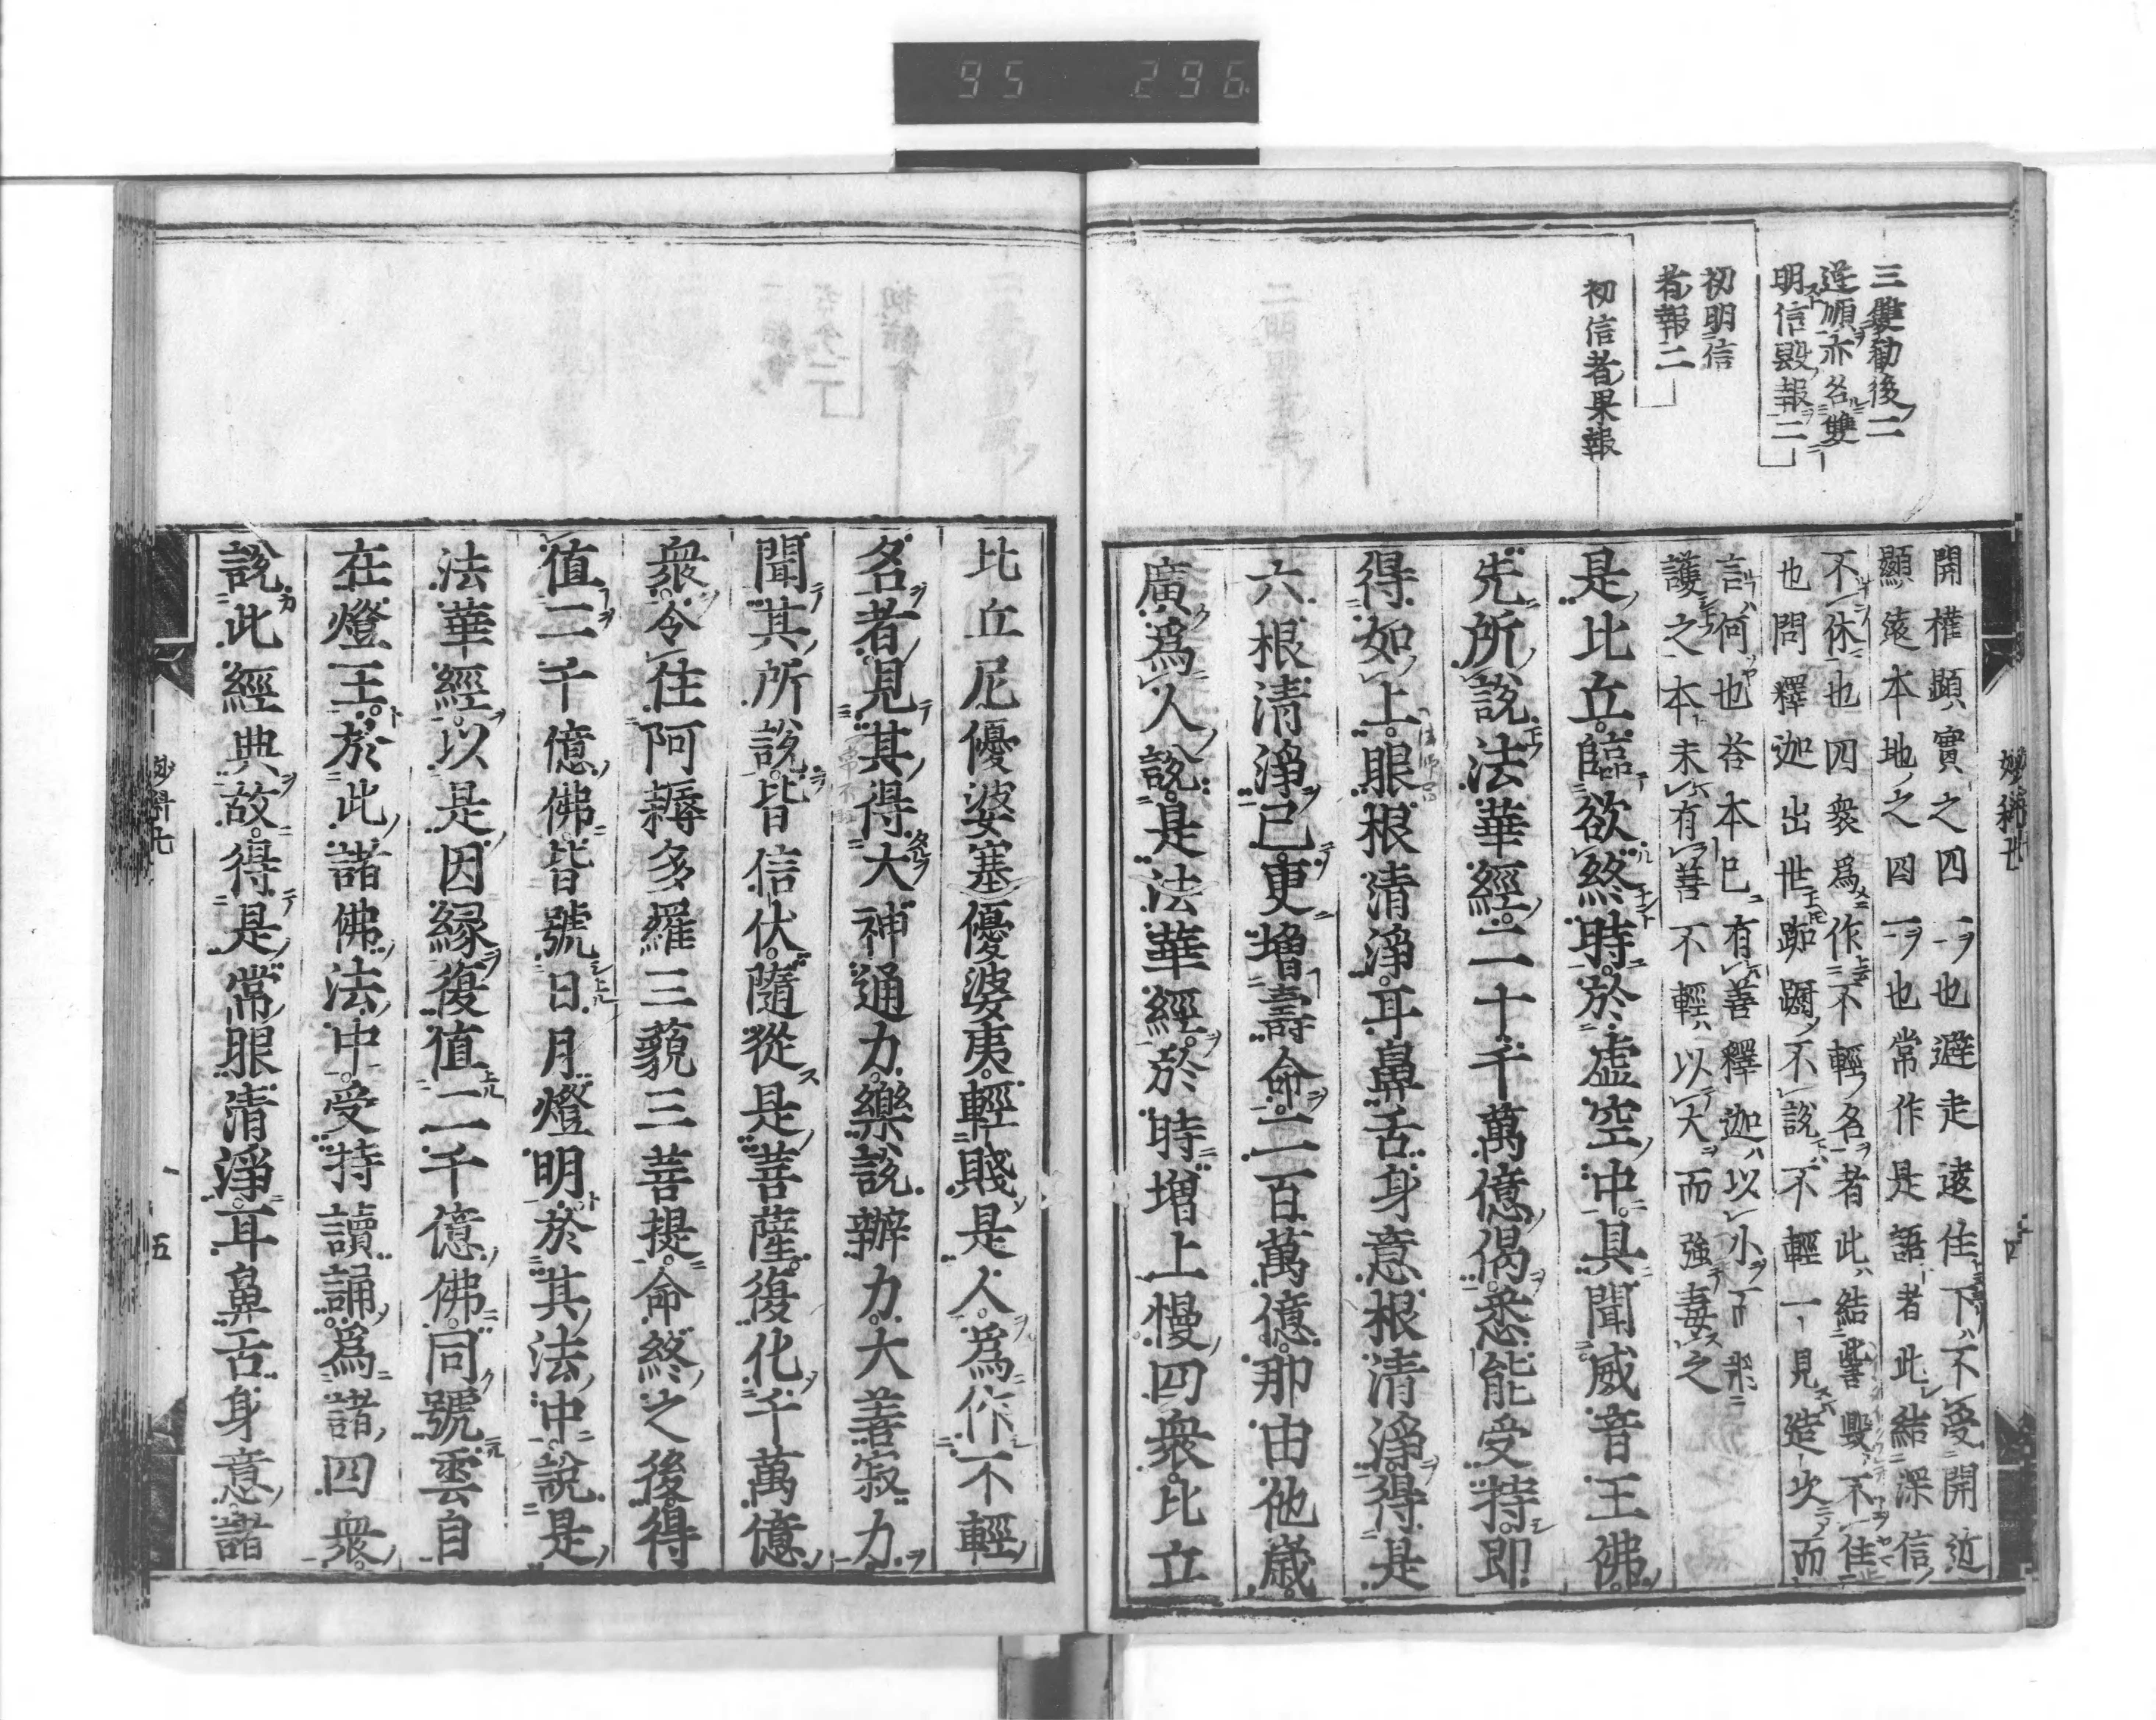 95 296
三雙勸後二
逆順亦名雙
明信毀報二
初明信
者報二
初信者果報
開權顯實之四一也避走遠住下不受開近
顯遠本地之四一也常作是語者此結深信
不休也四衆爲作不輕名者此結訾毀不住
也問釋迦出世踟躕不說不輕一見造次而
言何也答本已有善釋迦以小而
護之本未有善不輕以大而強毒之
是比丘臨欲終時於虛空中具聞威音王佛
先所說法華經二十千萬億偈悉能受持即
得如上眼根清淨耳鼻舌身意根清淨得是
六根清淨已更增壽命二百萬億那由他歲
廣爲人說是法華經於時增上慢四衆比丘
比丘尼優婆塞優婆夷輕賤是人爲作不輕
名者見其得大神通力樂說辦力大善寂力
聞其所說皆信伏隨從是菩薩復化千萬億
衆令住阿耨多羅三藐三菩提命終之後得
值二千億佛皆號日月燈明於其法中說是
法華經以是因緣復值二千億佛同號雲自
在燈王於此諸佛法中受持讀誦爲諸四衆
說此經典故得是常眼清淨耳鼻舌身意諸
五